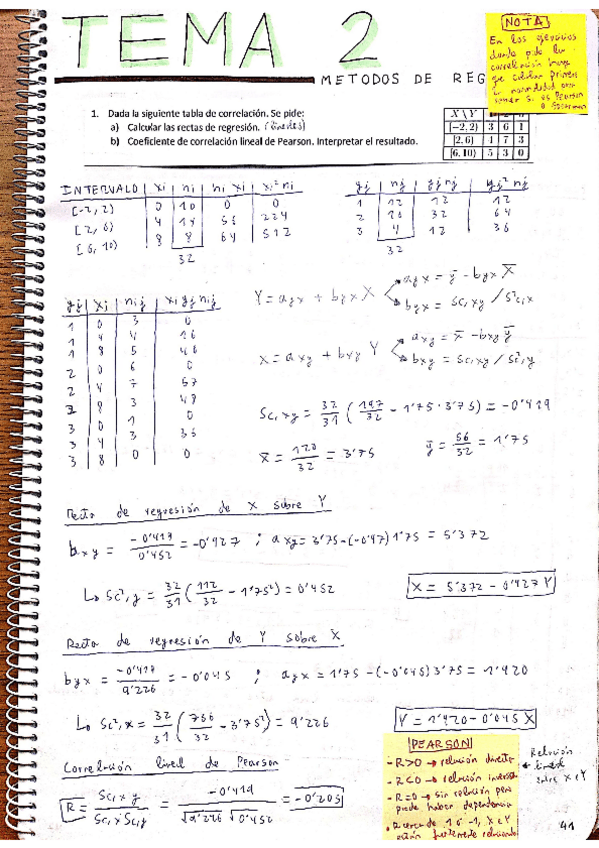 TEMA 2
METODOS DE REG
NOTA
En los ejercicios
donde pide la
correlación
que calcular primero
la normalidad para
saber si es Pearson
o Spearman
1. Dada la siguiente tabla de correlación. Se pide:
a) Calcular las rectas de regresión. (lineales)
b) Coeficiente de correlación lineal de Pearson. Interpretar el resultado.
X\Y 1 2 3
[−2,2) 3 6 1
[2,6) 4 7 3
[6,10) 5 3 0
INTERVALO xi ni ni xi xi² ni
[-2, 2) 0 10 0 0
[2, 6) 4 14 56 224
[6, 10) 8 8 64 512
32
yj nj yj nj yj² nj
1 12 12 12
2 16 32 64
3 4 12 36
32
yj xj nij xi yj nij
1 0 3 0
1 4 4 16
1 8 5 40
2 0 6 0
2 4 7 57
2 8 3 48
3 0 1 0
3 4 3 36
3 8 0 0
Y = ayx + byx X
ayx = ȳ - byx X̄
byx = Sc,xy / S²c,x
X = axy + bxy Y
axy = x̄ - bxy ȳ
bxy = Sc,xy / S²c,y
Sc,xy = 32/31 (197/32 - 1'75 · 3'75) = -0'419
x̄ = 120/32 = 3'75
ȳ = 56/32 = 1'75
Recta de regresión de X sobre Y
bxy = -0'419/0'452 = -0'927 ; axy = 3'75-(-0'97)1'75 = 5'372
↳ Sc²,y = 32/31 (112/32 - 1'75²) = 0'452
X = 5'372 - 0'927 Y
Recta de regresión de Y sobre X
byx = -0'417/9'226 = -0'045 ; ayx = 1'75 - (-0'045) 3'75 = 1'920
↳ Sc²,x = 32/31 (736/32 - 3'75²) = 9'226
Y = 1'920 - 0'045 X
Correlación lineal de Pearson
R = Sc,xy / Sc,x Sc,y = -0'419 / √9'226 √0'452 = -0'205
PEARSON
- R>0 → relación directa
- R<0 → relación inversa
- R=0 → sin relación pero
puede haber dependencia
• R cerca de 1 ó -1, X e Y
están fuertemente relacionadas
Relación
lineal
entre X e Y
41